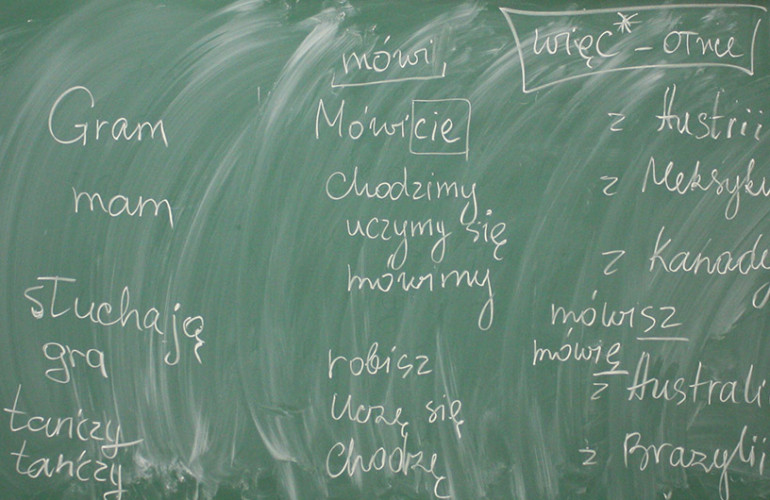 Gram
mam
słuchają
gra
tańczy
tańczy
mówi
Mówicie
chodzimy
uczymy się
mówimy
robisz
Uczę się
chodzę
więc* -
z Austrii
z Meksyku
z Kanady
mówisz
mówię
z Australi
z Brazylii